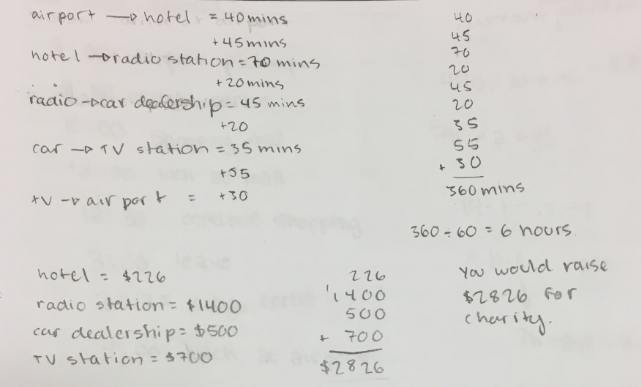 airport → hotel = 40 mins
+45mins
hotel → radio station = 70 mins
+20mins
radio → car dealership = 45 mins
+20
car → TV station = 35 mins
+55
tv → airport = +30
40
45
70
20
45
20
35
55
+ 30
360 mins
360 ÷ 60 = 6 hours.
hotel = $226
radio station = $1400
car dealership = $500
TV station = $700
226
1400
500
+ 700
$2826
You would raise
$2826 for
charity.